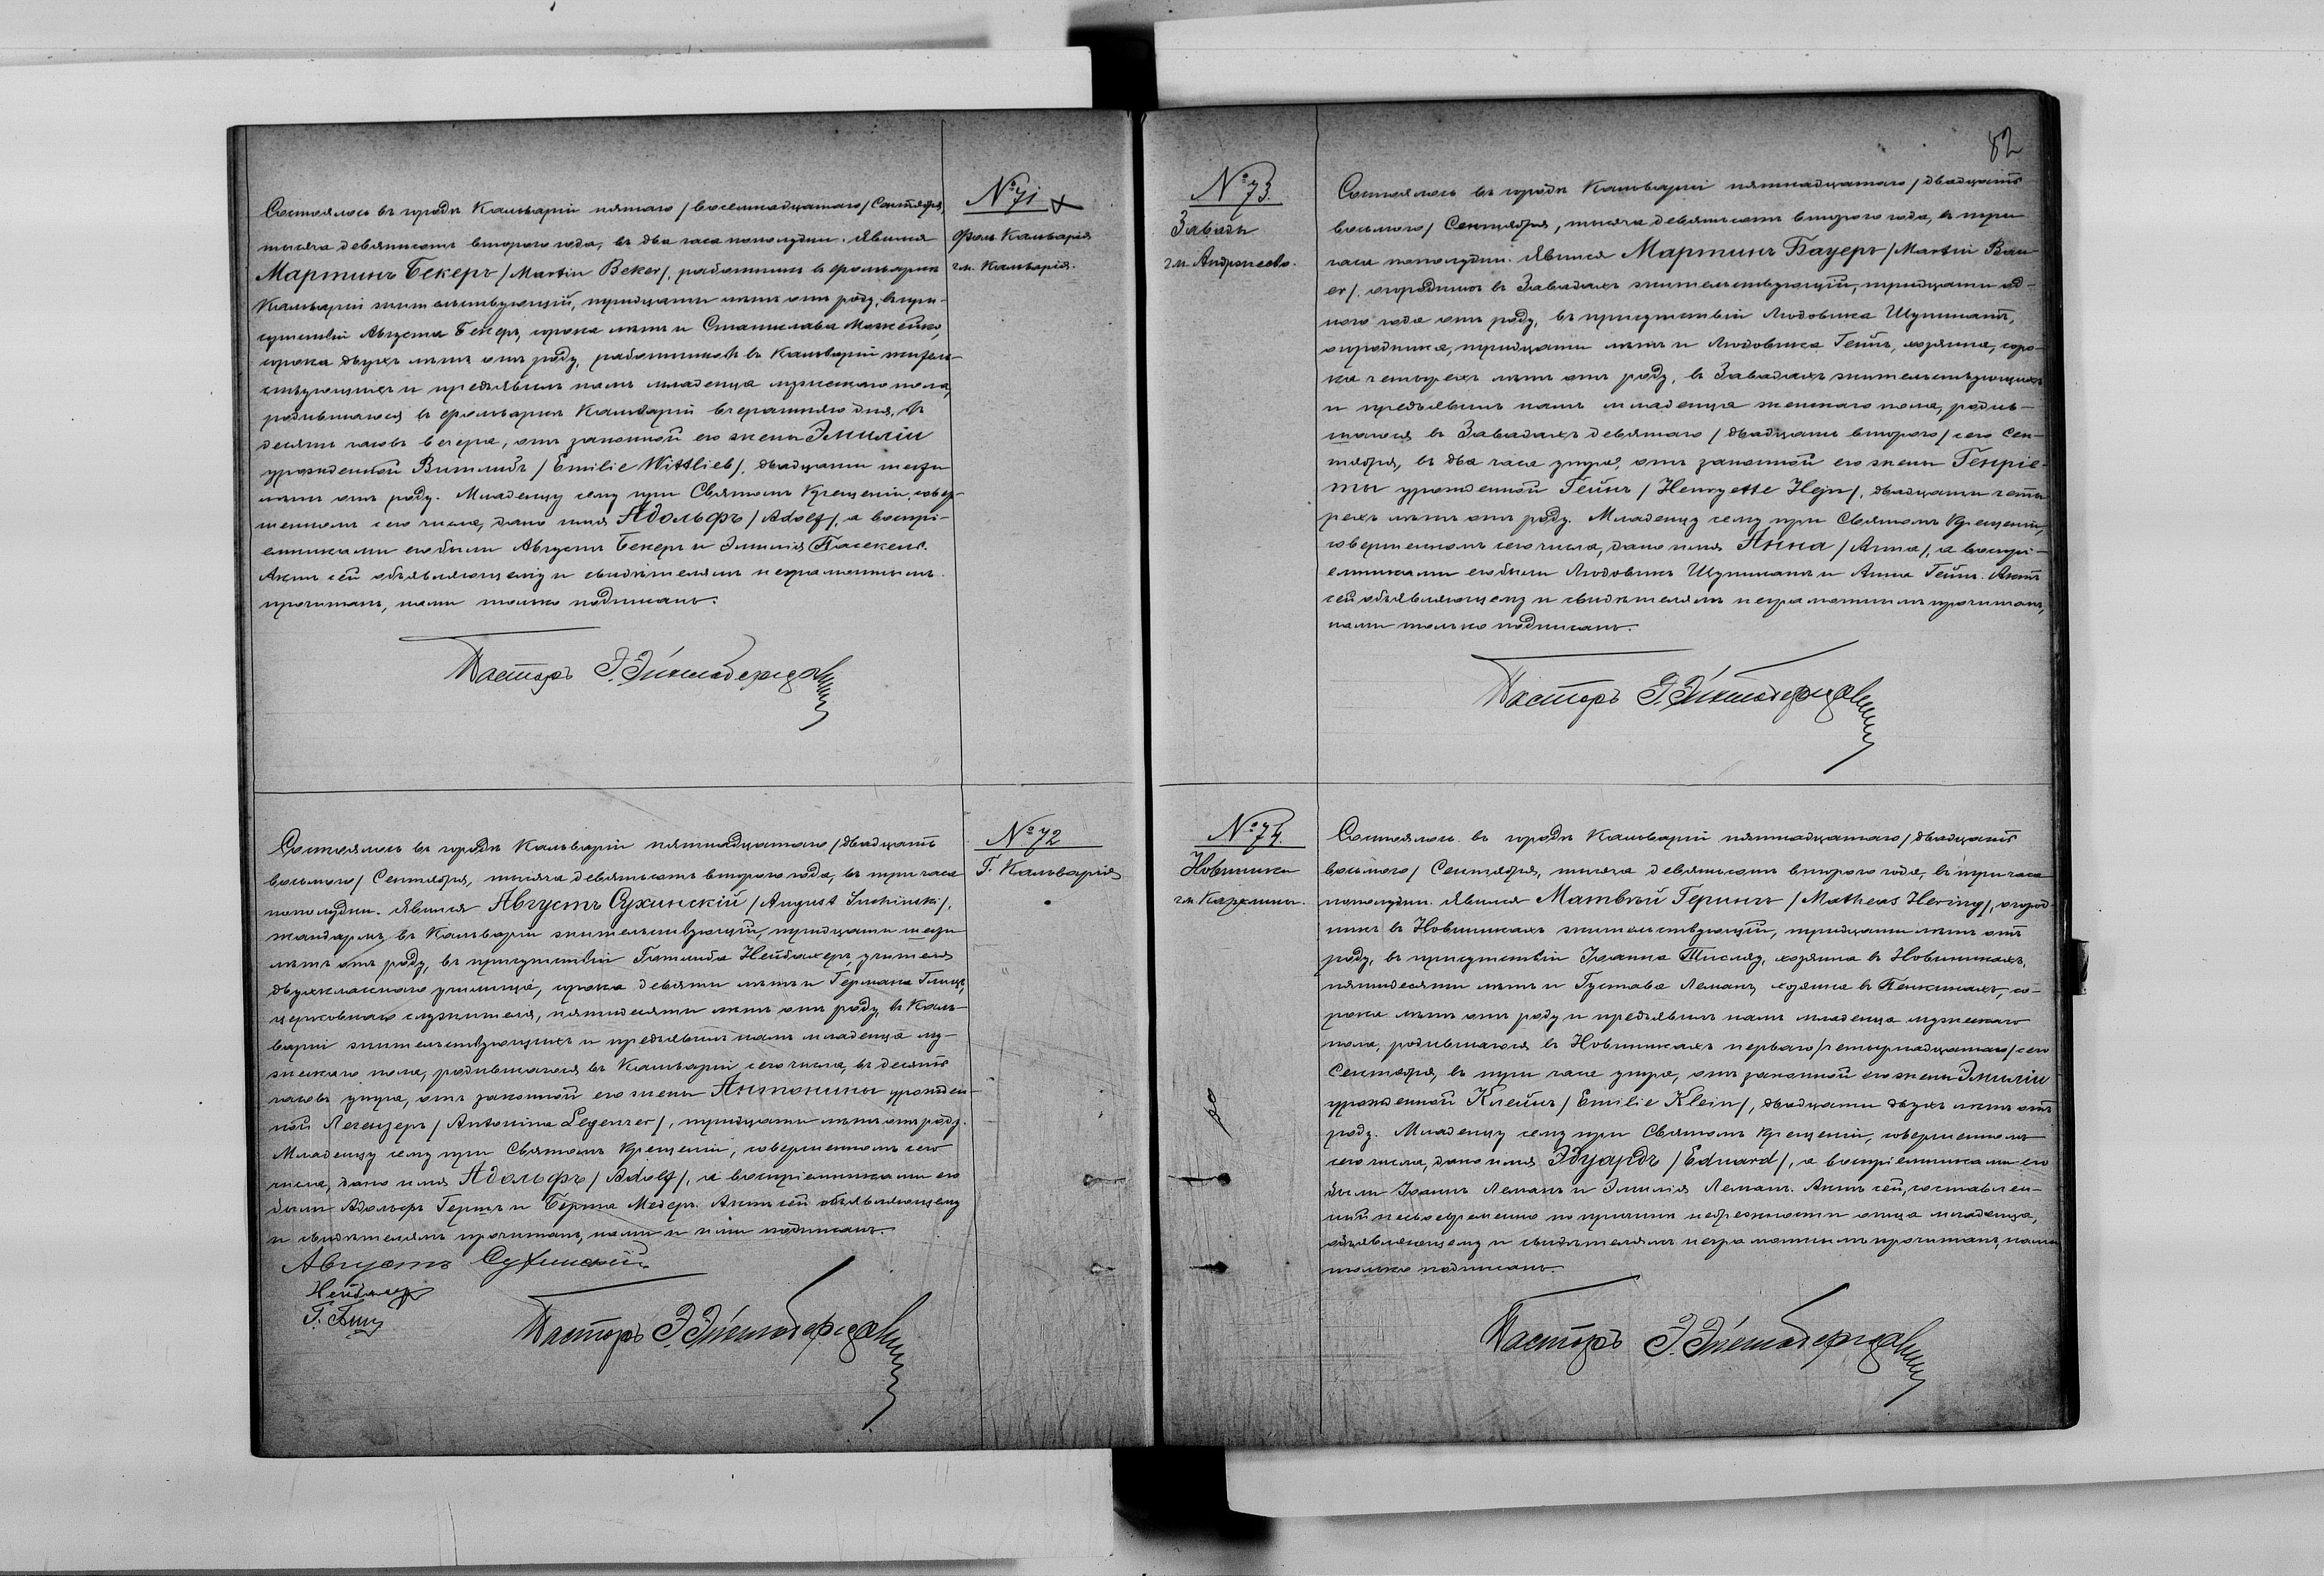 Состоялось въ городѣ Кальваріи пятаго /восемнадцатаго/ Сентября,
тысяча девятьсотъ второго года, въ два часа пополудни. Явился
Мартинъ Бекеръ /Martin Beker/, работникъ въ фольваркѣ
Кальваріи жительствующій, тридцати лѣтъ отъ роду, въ при-
сутствіи Августа Бекеръ, сорока лѣтъ и Станислава Можейко,
сорока двухъ лѣтъ отъ роду, работниковъ въ Кальваріи житель-
ствующихъ и предъявилъ намъ младенца мужескаго пола,
родившагося въ фольваркѣ Кальваріи вчерашняго дня, въ
десять часовъ вечера, отъ законной его жены Эмиліи
урожденной Витлибъ /Emilie Wittlieb/, двадцати шести
лѣтъ отъ роду. Младенцу сему при Святомъ Крещеніи, совер-
шенномъ сего числа, дано имя Адольфъ /Adolf/, а воспрі-
емниками его были Августъ Бекеръ и Эмилія
Актъ сей объявляющему и свидѣтелямъ неграмотнымъ
прочитанъ, нами только подписанъ.
Пасторъ Э.
№ 71
Фоль. Кальварія
гм. Кальварія.
Состоялось въ городѣ Кальваріи пятнадцатаго /двадцать
восьмого/ Сентября, тысяча девятьсотъ второго года, въ три часа
пополудни. Явился Августъ Сухинскій /August Suchinski/,
жандармъ, въ Кальваріи жительствующій, тридцати шести
лѣтъ отъ роду, въ присутствіи Готлиба Нейбахеръ, учителя
двухкласснаго училища, сорока девяти лѣтъ и Германа Глицъ,
церковнаго служителя, пятидесяти лѣтъ отъ роду, въ Каль-
варіи жительствующихъ и предъявилъ намъ младенца му-
жескаго пола, родившагося въ Кальваріи сего числа, въ десять
часовъ утра, отъ законной его жены Антонины урожден-
ной Легензеръ /Antonina Legenzer/, тридцати лѣтъ отъ роду.
Младенцу сему при Святомъ Крещеніи, совершенномъ сего
числа, дано имя Адольфъ /Adolf/, а воспріемниками его
были Адольфъ и Берта Медеръ. Актъ сей объявляющему
и свидѣтелямъ прочитанъ, нами и ними подписанъ.
Августъ Сухинскій
Нейбахеръ
Г. Глицъ
Пасторъ Э.
№ 72
Г. Кальварія
82
№ 73.
Завады
гм. Андржеево.
Состоялось въ городѣ Кальваріи пятнадцатаго /двадцать
восьмого/ Сентября, тысяча девятьсотъ второго года, въ три
часа пополудни. Явился Мартинъ Бауеръ /Martin Bau-
er/, огородникъ въ Завадахъ жительствующій, тридцати од-
ного года отъ роду, въ присутствіи Людовика Шупманъ,
огородника, тридцати лѣтъ и Людовика Гейнъ, хозяина, соро-
ка четырехъ лѣтъ отъ роду, въ Завадахъ жительствующихъ
и предъявилъ намъ младенца женскаго пола, родив-
шагося въ Завадахъ девятаго /двадцать второго/ сего Сен-
тября, въ два часа утра, отъ законной его жены Генріе-
ты урожденной Гейнъ /Henryette Hejn/, двадцати четы-
рехъ лѣтъ отъ роду. Младенцу сему при Святомъ Крещеніи,
совершенномъ сего числа, дано имя Анна /Anna/, а воспрі-
емниками его были Людовикъ Шупманъ и Анна Гейнъ. Актъ
сей объявляющему и свидѣтелямъ неграмотнымъ прочитанъ,
нами только подписанъ.
Пасторъ Э.
№ 74.
Новинники
гм.
Состоялось въ городѣ Кальваріи пятнадцатаго /двадцать
восьмого/ Сентября, тысяча девятьсотъ второго года, въ три часа
пополудни. Явился Матвѣй Герингъ /Matheus Hering/, огород-
никъ въ Новинникахъ жительствующій, тридцати лѣтъ отъ
роду, въ присутствіи Іоанна хозяина въ Новинникахъ,
пятидесяти лѣтъ и Густава Леманъ, хозяина въ со-
рока лѣтъ отъ роду и предъявилъ намъ младенца мужескаго
пола, родившагося въ Новинникахъ перваго /четырнадцатаго/ сего
Сентября, въ три часа утра, отъ законной его жены Эмиліи
урожденной Клейнъ /Emilie Klein/, двадцати двухъ лѣтъ отъ
роду. Младенцу сему при Святомъ Крещеніи, совершенномъ
сего числа, дано имя Эдуардъ /Eduard/, а воспріемниками его
были Іоаннъ Леманъ и Эмилія Леманъ. Актъ сей, составлен-
ный несвоевременно по причинѣ небрежности отца младенца,
объявляющему и свидѣтелямъ неграмотнымъ прочитанъ, нами
только подписанъ.
Пасторъ Э.